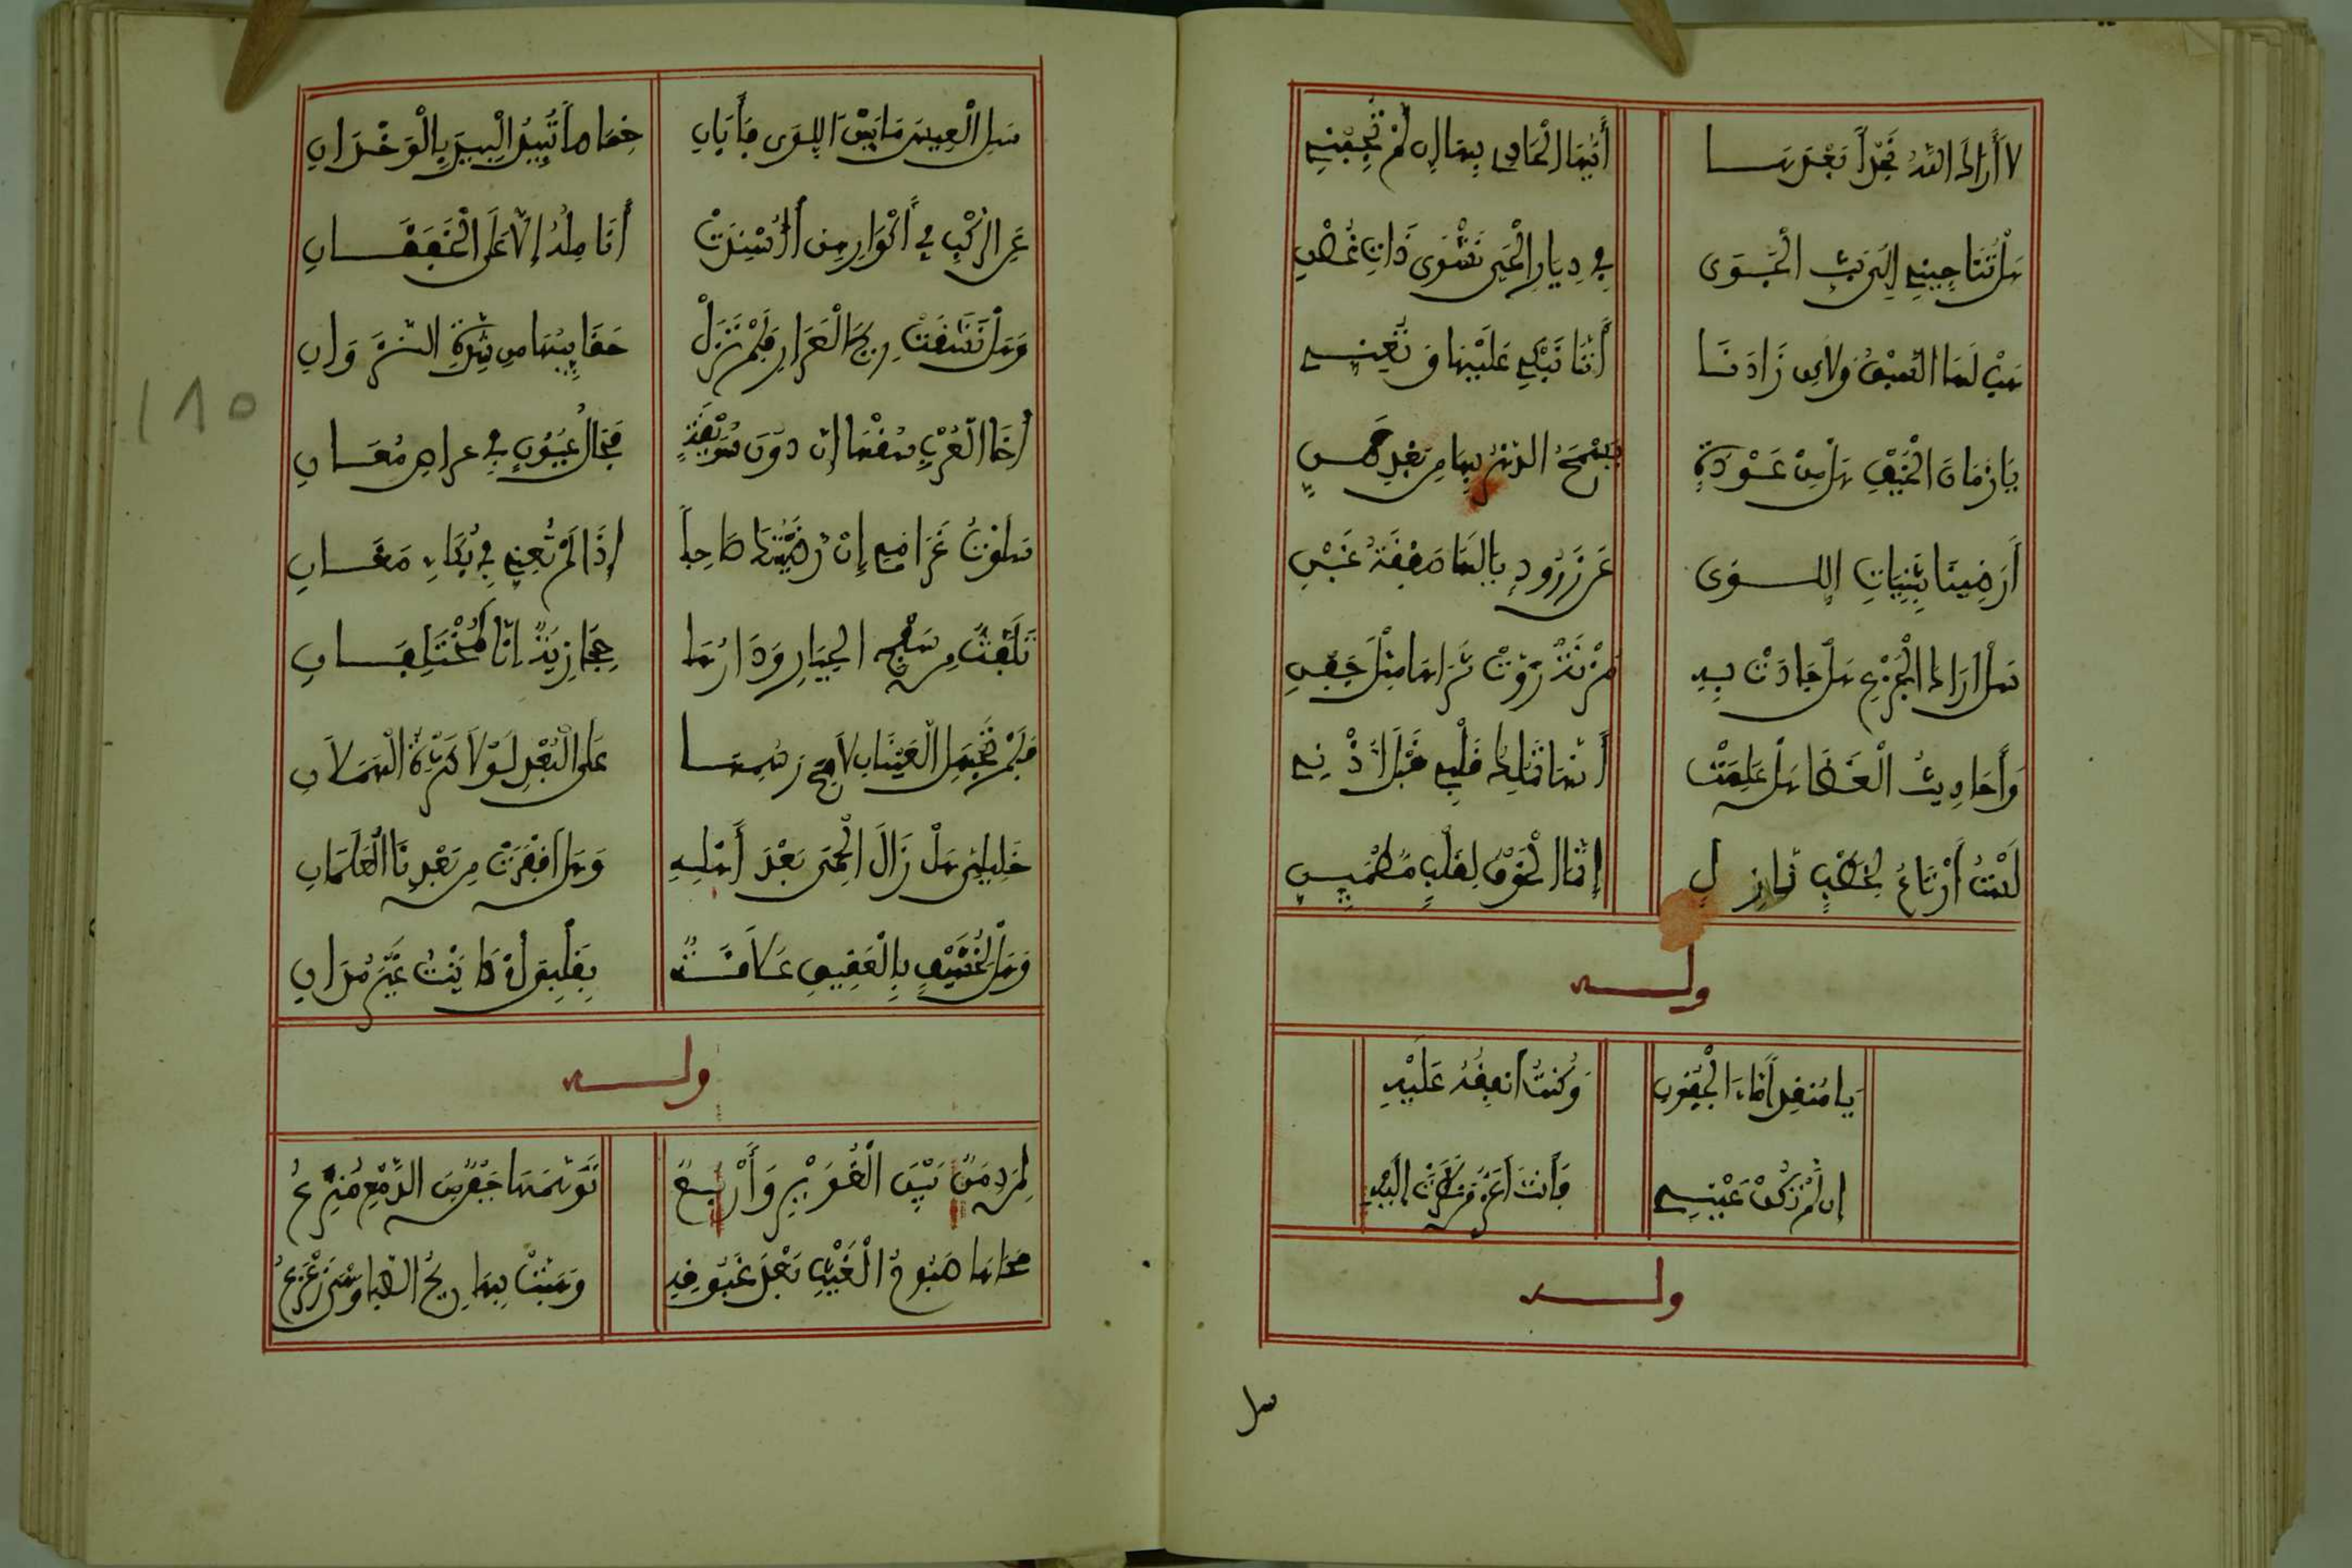 لا أراك الله نجدا بعدها أيها الحادي بها إن لم تجبني
هل تناجيني إلى بث الجوى في ديار الحي نشوى ذات غصن
هب لها السبق ولاكن زادنا أننا نبكي عليها وتغني
يا زمان الخيف هل من عودة يسمح الدهر بها من بعد ضن
أرضينا بثنيات اللوى عن زرود يا لها صفقة غبن
سل أراك الجزع هل جادت به مزنة روت ثراها مثل جفني
وأحاديث الغضا هل علمت أنها تملك قلبي قبل أذني
لست أرتاع لخطب نازل إنما الخوف لقلب مطمئن
وله
يا منفدا ماء الجفون وكنت أنفقه عليه
إن لم تكن عيني فأنت أعز من نظرت إليه
وله
سل
سل العيس ما بين اللوى فأبان خماصا تبيد البيد بالوخدان
عن الركب في أكوارهن أأسندت أناملهم إلا على الخفقان
وهل نشفت ريح العرار فلم تزل حقائبها من شدة النزوان
أخا العرب سقها إن دون سويقة مجال عيون في عراص مغان
سلوت غرامي إن رضيتك صاحبا إذا لم تعني في بكاء مغان
تلفت من سفح الجبار ودارها حجازية إنا لمختلفان
فلم تحمل العينان لامح رسمها على البعد لولا كثرة الهملان
خليلي هل زال الحمى بعد أهله وهل أقفرت من بعدنا العلمان
وهل لخشيف بالعقيق علاقة بقلبي أو كانت غير مدان
وله
لمن دمن بين الغوير وأربع توسمها جفن من الدمع مترع
محاها صبوح الغيث بعد غبوقه وهبت بها ريح الصبا وهي زعزع
١٨٥